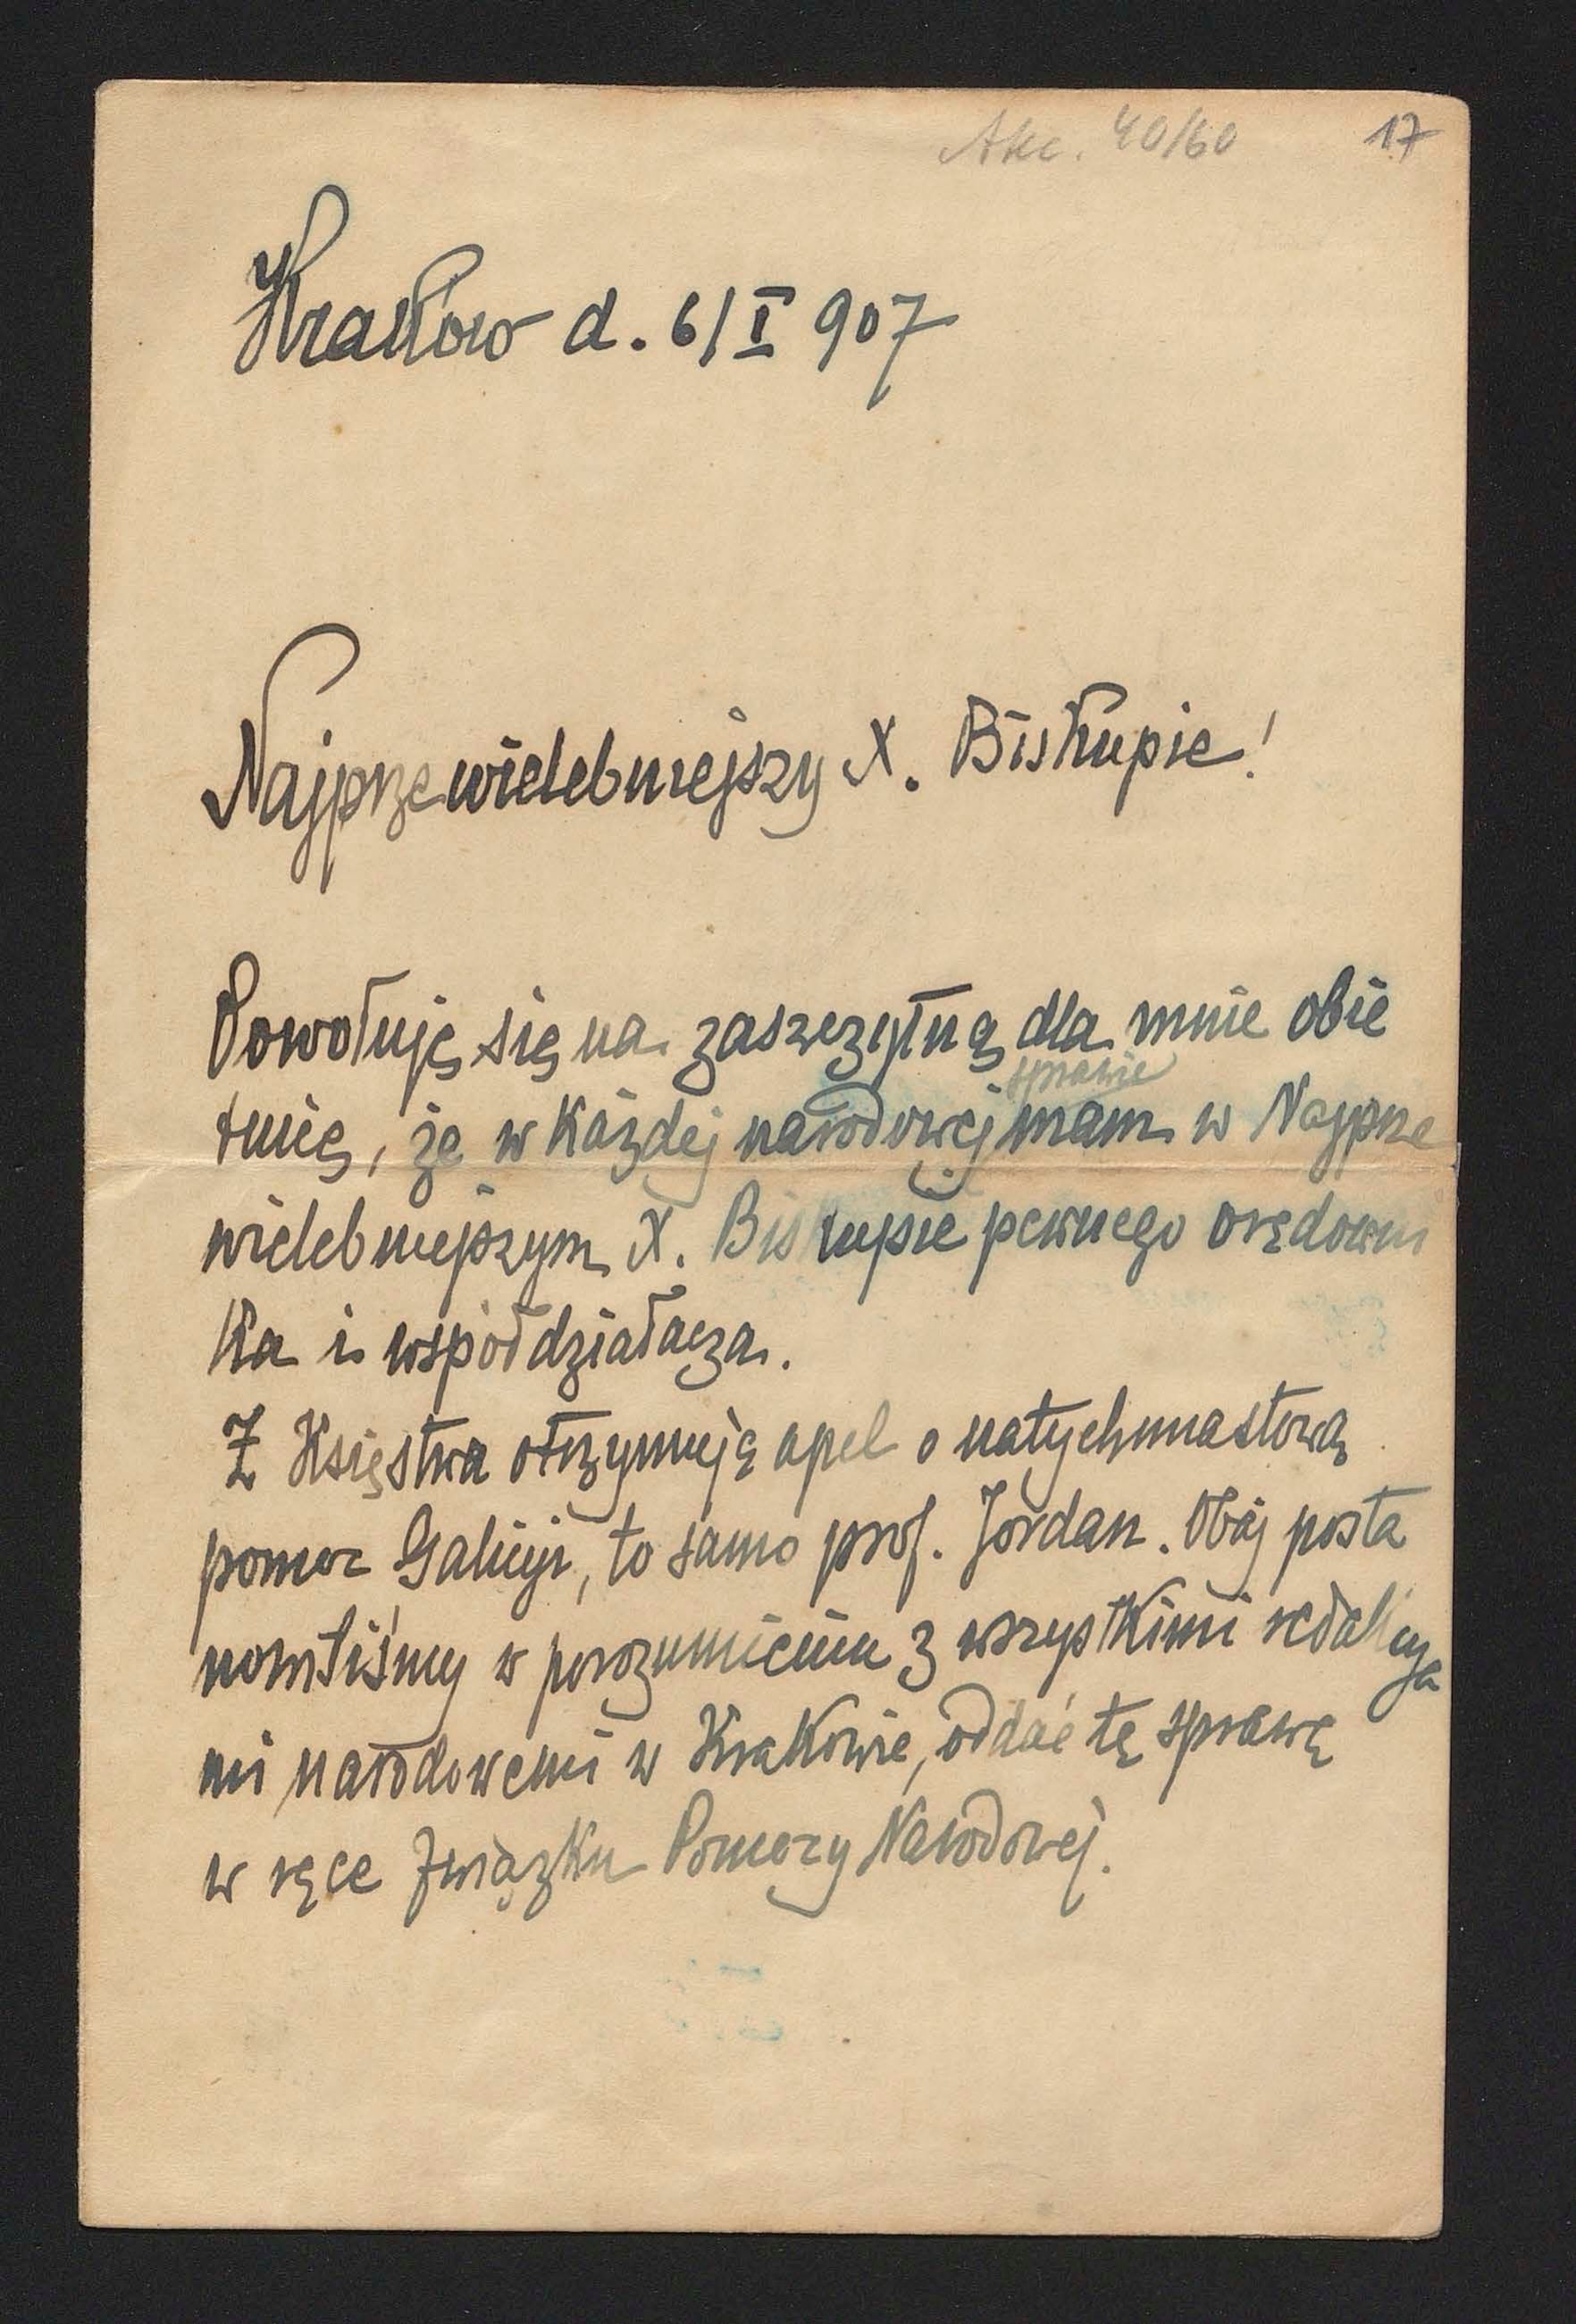 Akc. 40/60 17
Kraków d. 6/I 907
Najprzewielebniejszy X. Biskupie!
Powołuję się na zaszczytną dla mnie obie
tnicę, że w każdej narodowej sprawie mam w Najprze
wielebniejszym X. Biskupie pewnego orędowni
ka i współdziałacza.
Z Księstwa otrzymuję apel o natychmiastową
pomoc Galicyi, to samo prof. Jordan. Obaj posta
nowiliśmy w porozumieniu z wszystkimi redakcya
mi narodowemi w Krakowie, oddać tę sprawę
w ręce Związku Pomocy Narodowej.